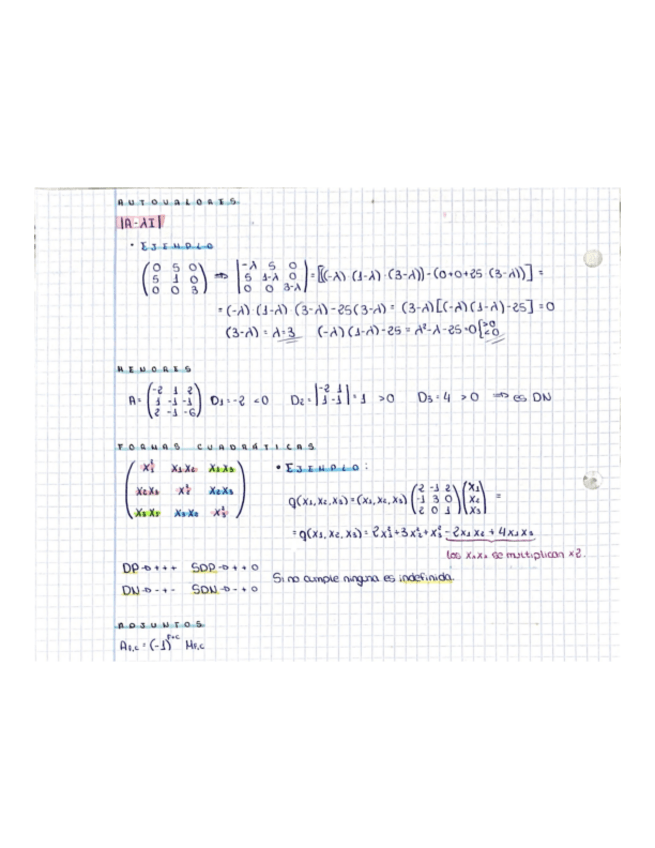 AUTOVALORES
|A-λI|
• EJEMPLO
(0 5 0; 5 1 0; 0 0 3) ⇒ |-λ 5 0; 5 1-λ 0; 0 0 3-λ| = [((-λ)·(1-λ)·(3-λ))-(0+0+25·(3-λ))] =
= (-λ)·(1-λ)·(3-λ)-25(3-λ) = (3-λ)[(-λ)(1-λ)-25] = 0
(3-λ) = λ=3 (-λ)(1-λ)-25 = λ²-λ-25=0 [>0 <0
MENORES
A = (-2 1 2; 1 -1 -1; 2 -1 -6) D1 = -2 <0 D2 = |-2 1; 1 -1| = 1 >0 D3 = 4 > 0 ⇒ es DN
FORMAS CUADRÁTICAS
(x₁² x₁x₂ x₁x₃; x₂x₁ x₂² x₂x₃; x₃x₁ x₃x₂ x₃²)
• EJEMPLO:
q(x₁,x₂,x₃) = (x₁,x₂,x₃) (2 -1 2; -1 3 0; 2 0 1) (x₁; x₂; x₃) =
= q(x₁,x₂,x₃) = 2x₁²+3x₂²+x₃²-2x₁x₂+4x₁x₃
los x₁x₂ se multiplican x2.
DP→+++ SDP→++0
DN→-+- SDN→-+0
Si no cumple ninguna es indefinida.
ADJUNTOS